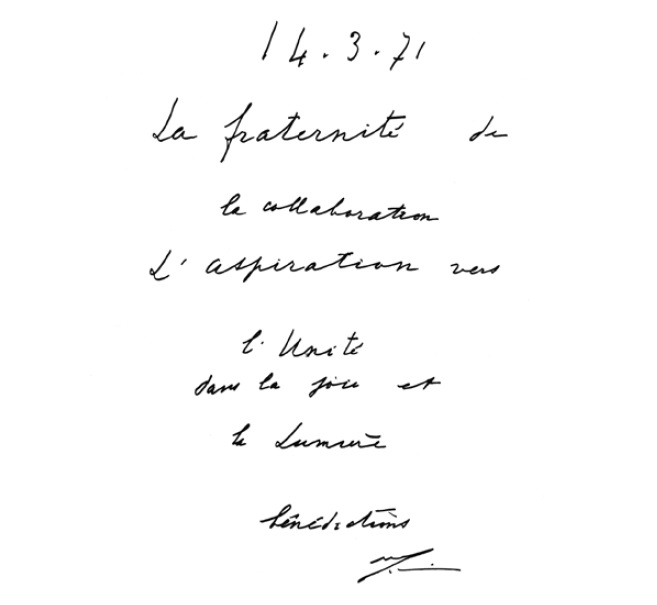 14.3.71
La fraternité de
la collaboration
L'aspiration vers
l'Unité
dans la joie et
la Lumière
bénédictions